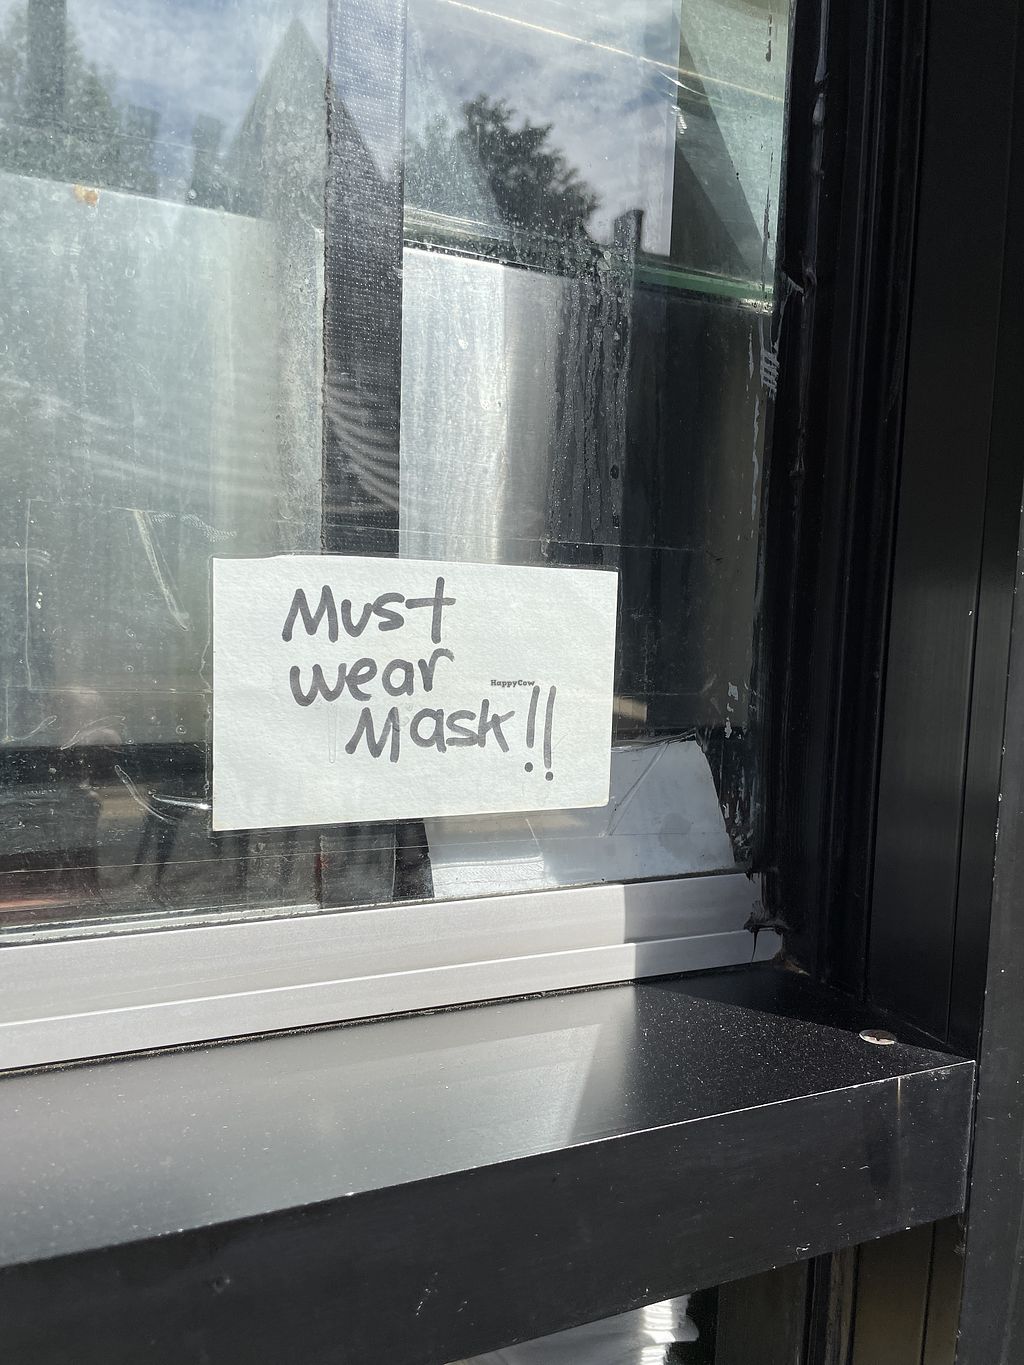 Must
wear
Mask!!
HappyCow